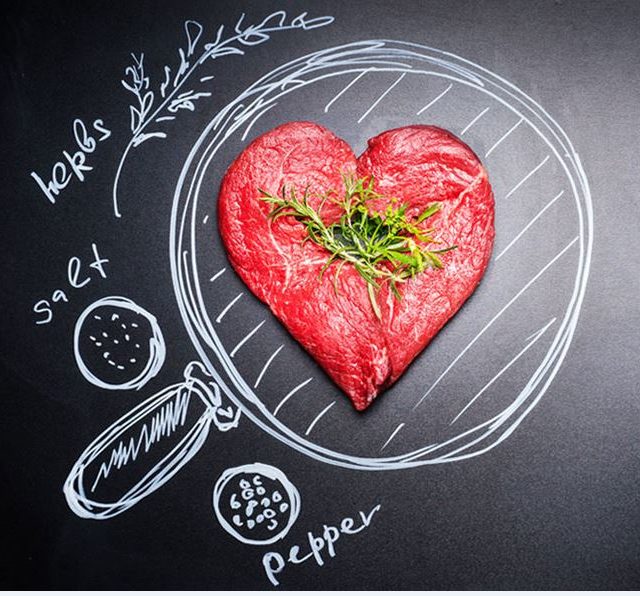 herbs
salt
pepper